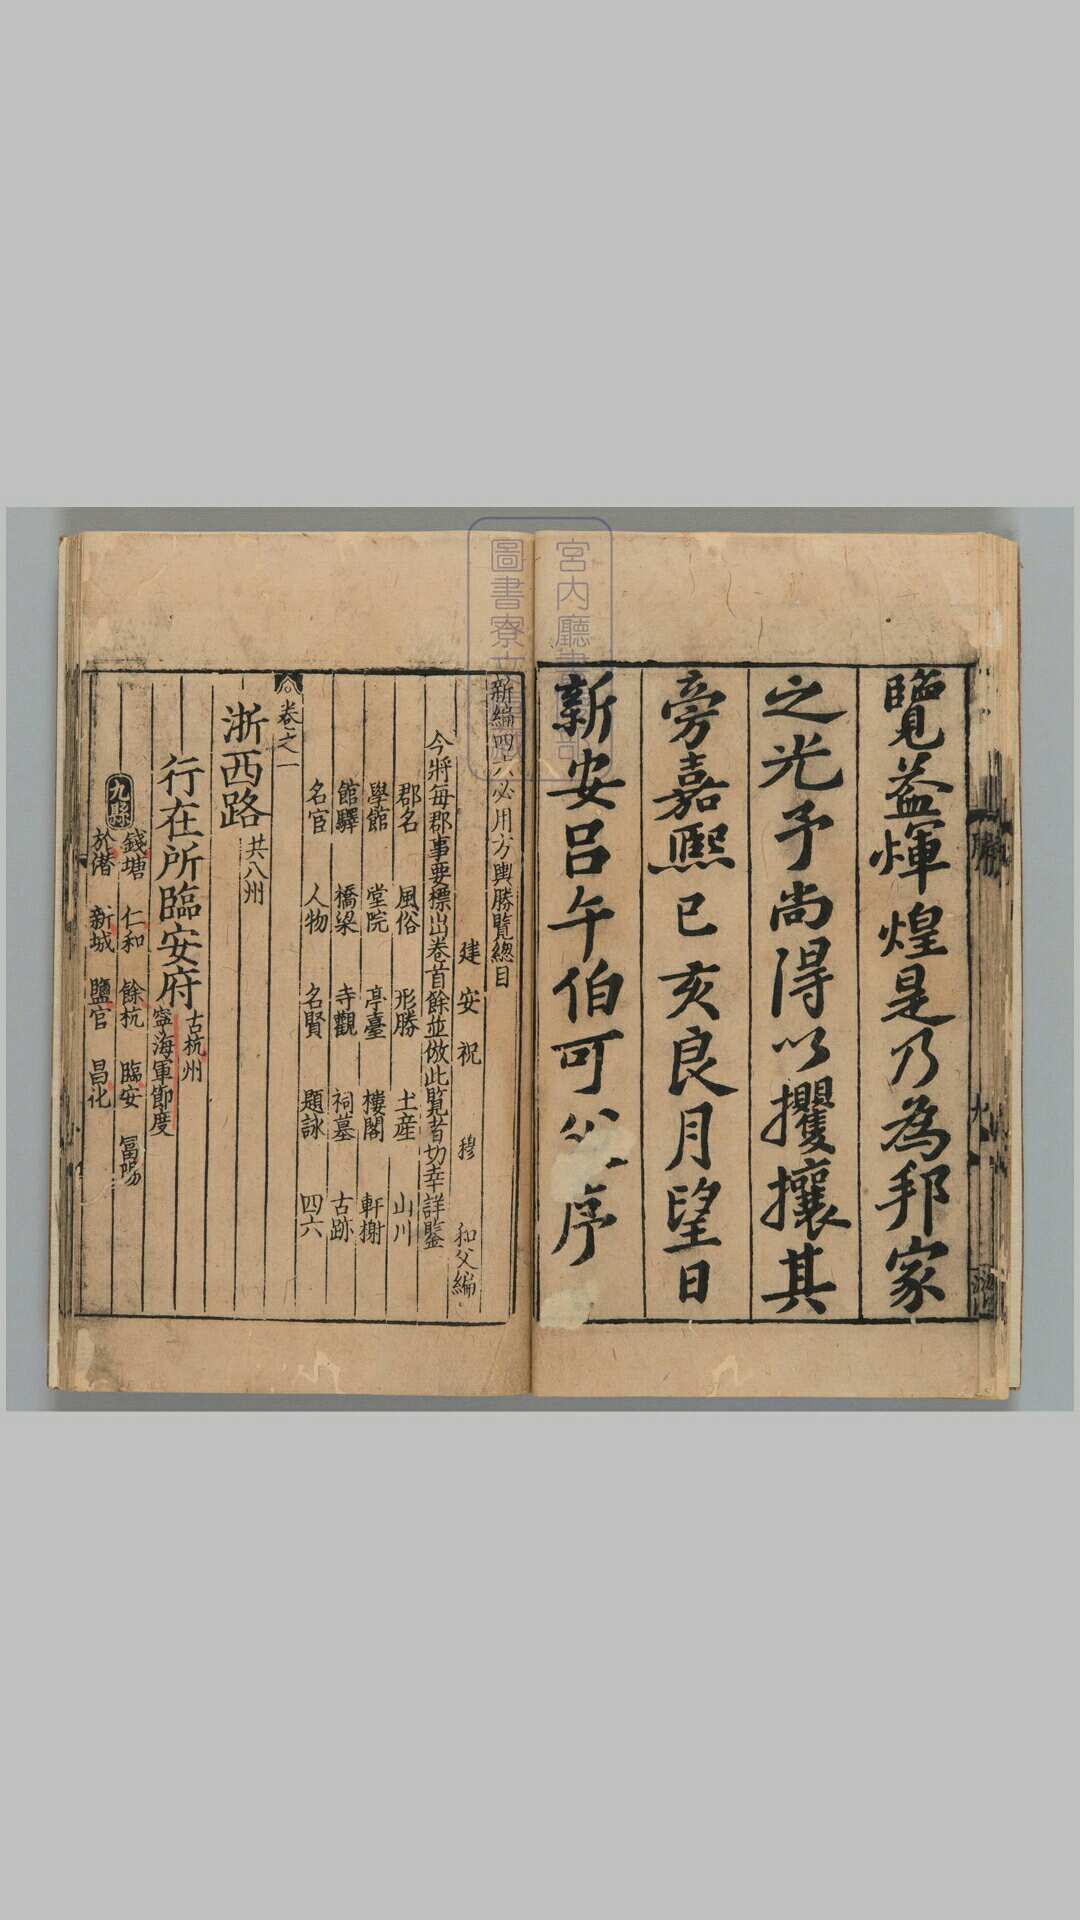 覽益煇煌是乃為邦家
之光予尚得以攫攘其
旁嘉熙已亥良月望日
新安呂午伯可 序
新編四六必用方輿勝覽總目
建安祝穆和父編
今將每郡事要標出卷首餘並倣此覽者切幸詳鑒
郡名 風俗 形勝 土産 山川
學館 堂院 亭臺 樓閣 軒榭
館驛 橋梁 寺觀 祠墓 古跡
名官 人物 名賢 題詠 四六
卷之一
浙西路 共八州
行在所臨安府 古杭州 寧海軍節度
九縣 錢塘 仁和 餘杭 臨安 冨陽
於潜 新城 鹽官 昌化
宮内廳書陵部
圖書寮文庫藏